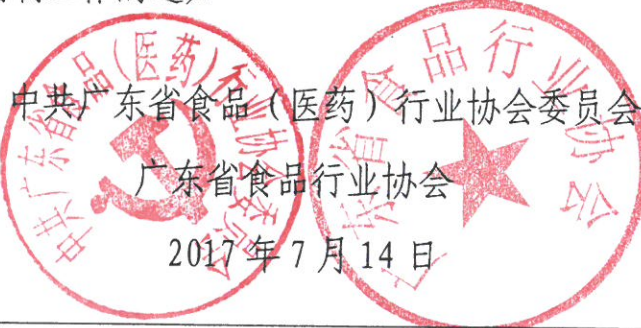 中共广东省食品（医药）行业协会委员会
广东省食品行业协会
2017年7月14日
中共广东省食品(医药)行业协会委员会
广东省食品行业协会